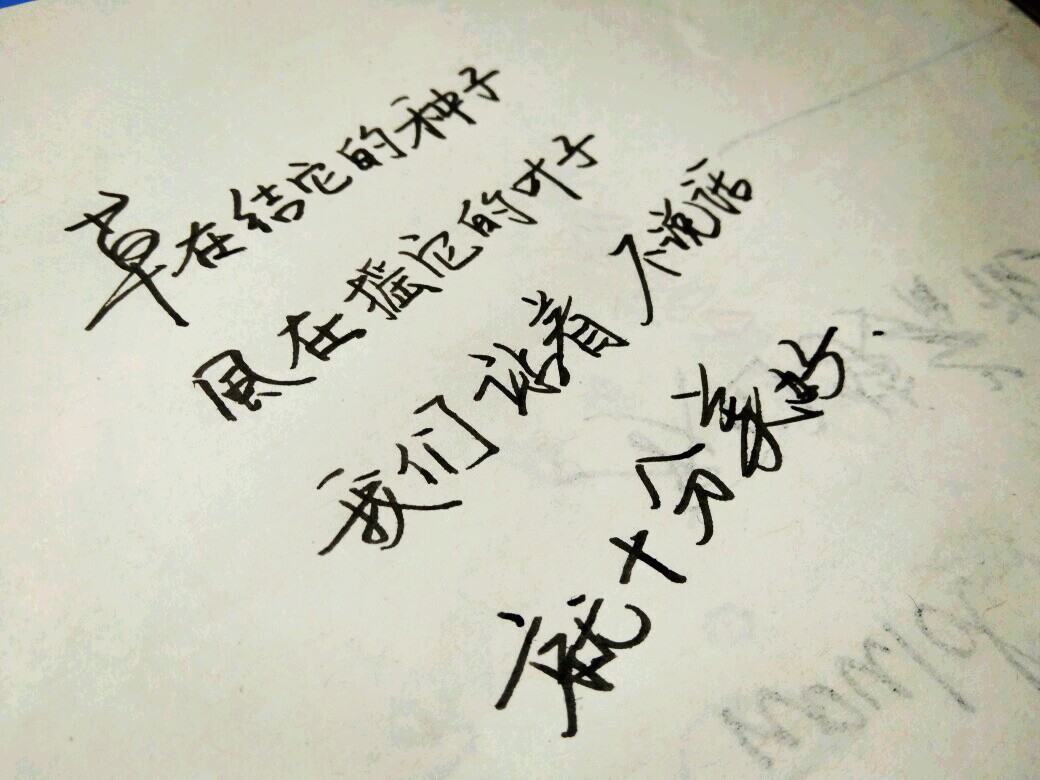 草在结它的种子
風在摇它的叶子
我们站着 不说话
就十分美好.